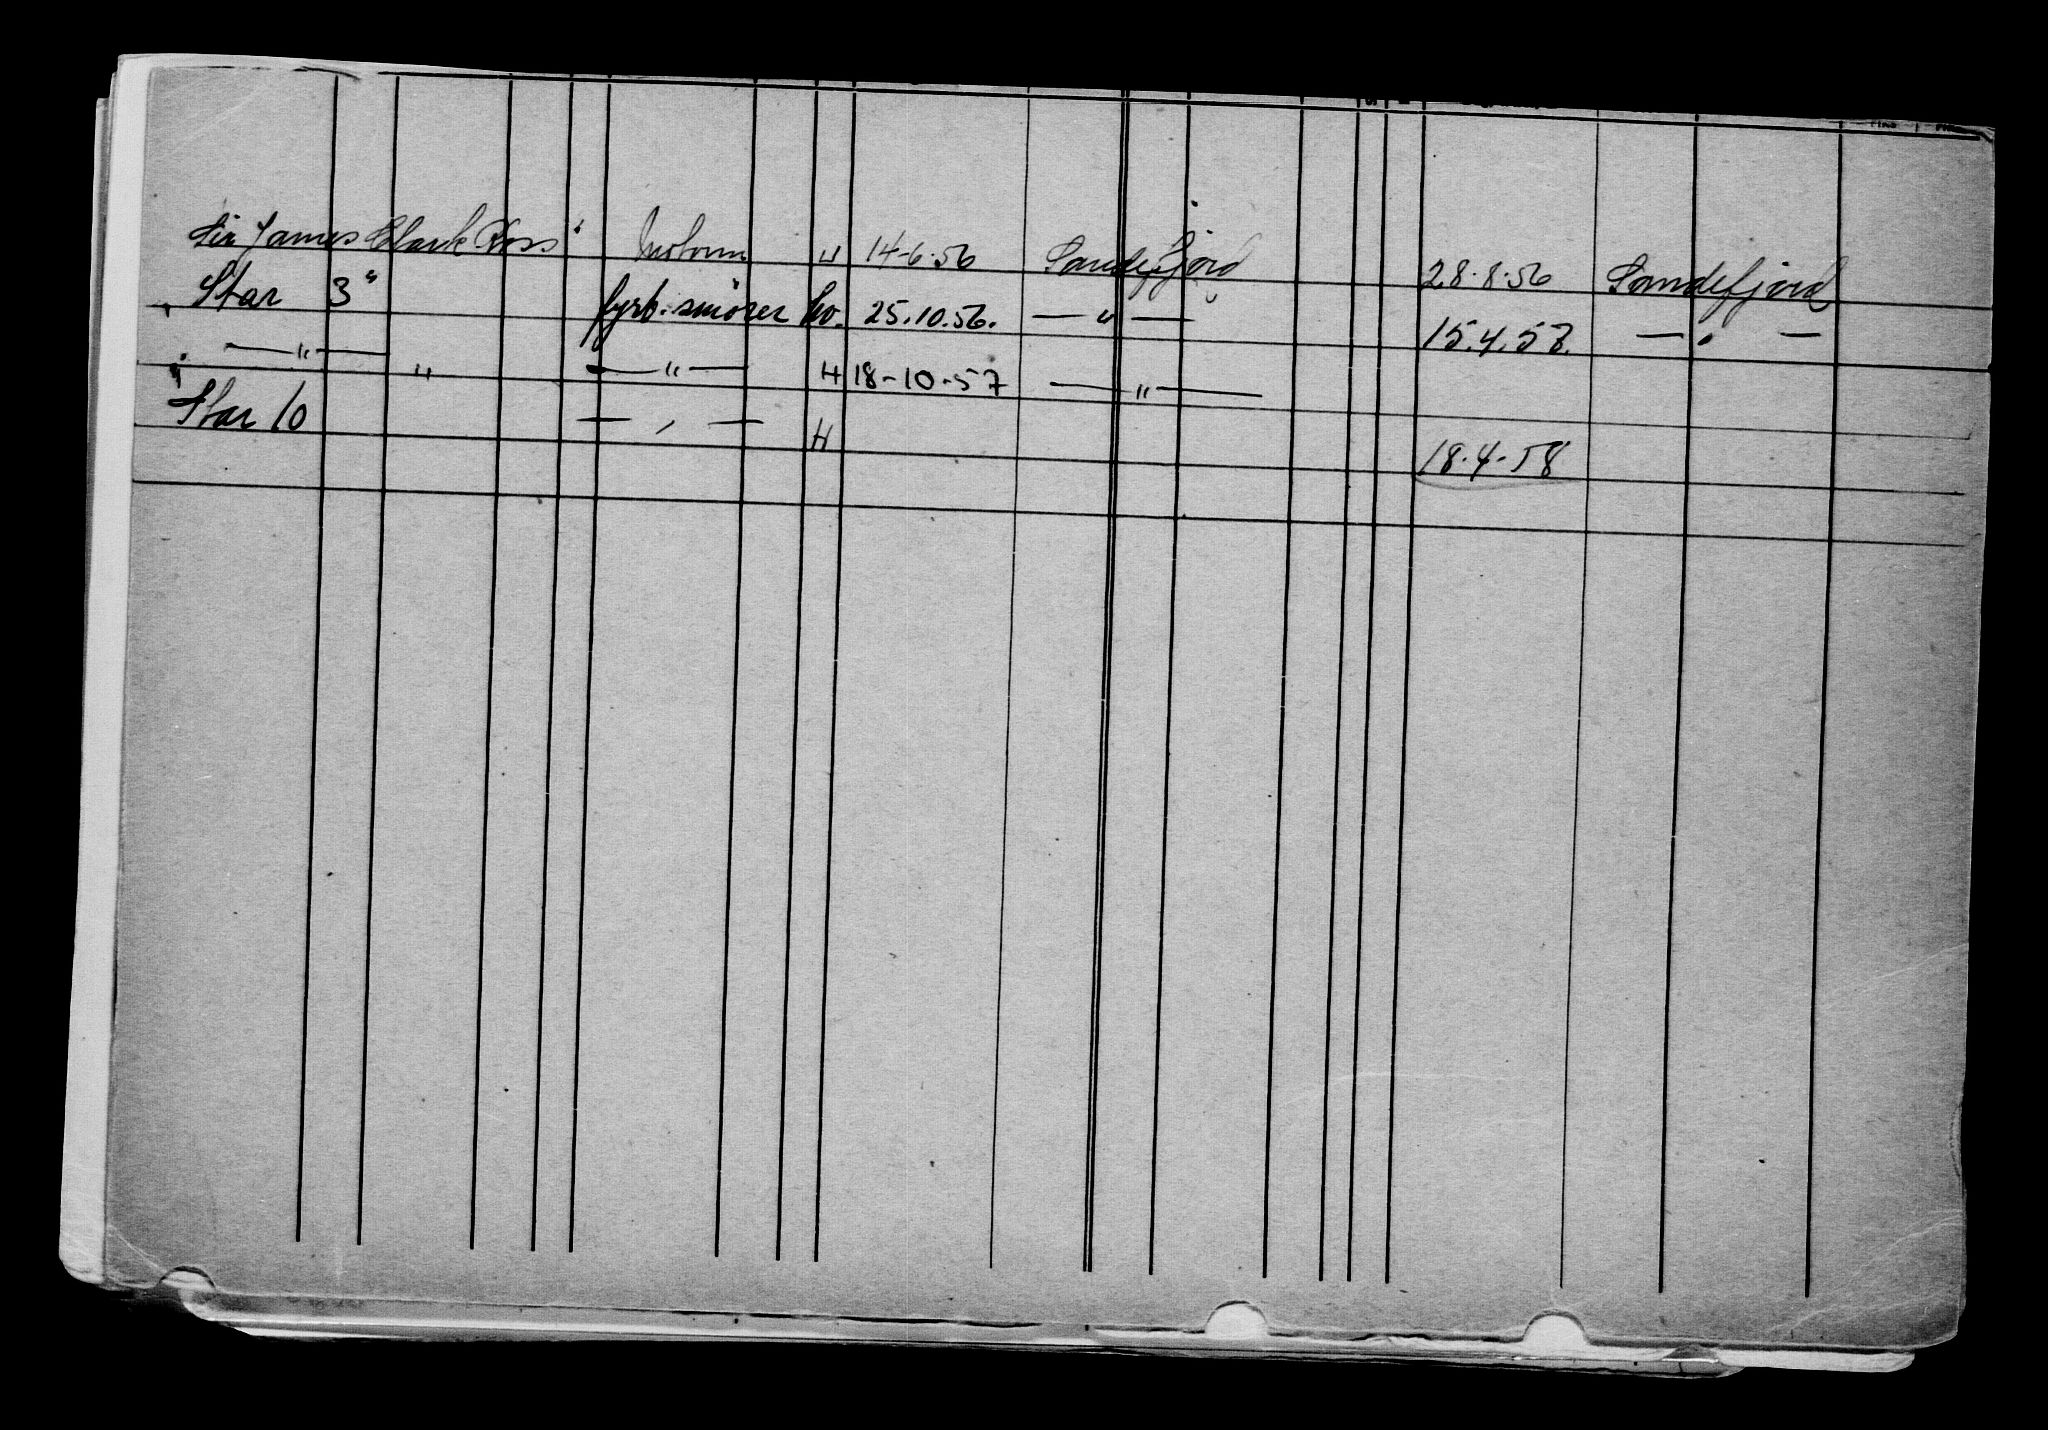 Sir James Clark Ross" Motorm H 14-6-56 Sandefjord 28.8.56 Sandefjord
Star 3" fyrb. smører ho. 25.10.56. — " — 15.4.57. — " —
— " — " — " — H 18-10-57 — " —
Star 10 — " — H 18.4-58